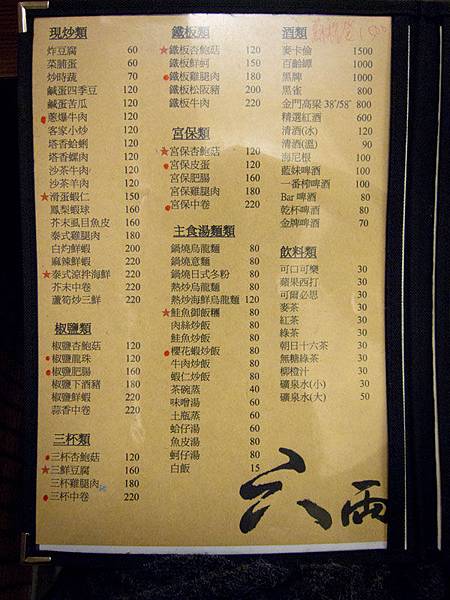 現炒類
炸豆腐 60
菜脯蛋 60
炒時蔬 70
鹹蛋四季豆 120
鹹蛋苦瓜 120
● 蔥爆牛肉 120
客家小炒 120
塔香蛤蜊 120
塔香螺肉 120
沙茶牛肉 120
沙茶羊肉 120
★ 滑蛋蝦仁 150
鳳梨蝦球 160
芥末虱目魚皮 160
泰式雞腿肉 180
白灼鮮蝦 200
麻辣鮮蝦 220
★ 泰式涼拌海鮮 220
芥末中卷 220
蘆筍炒三鮮 220
椒鹽類
椒鹽杏鮑菇 120
● 椒鹽龍珠 120
● 椒鹽肥腸 160
椒鹽下酒豬 220
椒鹽鮮蝦 220
蒜香中卷 220
三杯類
● 三杯杏鮑菇 120
★ 三鮮豆腐 160
三杯雞腿肉 180
● 三杯中卷 220
鐵板類
★ 鐵板杏鮑菇 120
鐵板鮮蚵 150
● 鐵板雞腿肉 180
鐵板松阪豬 200
鐵板牛肉 220
宮保類
★ 宮保杏鮑菇 120
● 宮保皮蛋 120
宮保肥腸 160
宮保雞腿肉 180
● 宮保中卷 220
主食湯麵類
鍋燒烏龍麵 80
鍋燒意麵 80
鍋燒日式冬粉 80
熱炒烏龍麵 80
熱炒海鮮烏龍麵 120
★ 鮭魚御飯糰 80
肉絲炒飯 80
鮭魚炒飯 80
● 櫻花蝦炒飯 80
牛肉炒飯 80
蝦仁炒飯 80
茶碗蒸 40
味噌湯 60
土瓶蒸 60
蛤仔湯 60
魚皮湯 80
蚵仔湯 80
白飯 15
酒類
麥卡倫 1500
百齡罈 1000
黑牌 1000
黑雀 800
金門高粱 38˚/58˚ 800
精選紅酒 600
清酒(冰) 120
清酒(溫) 90
海尼根 100
藍妹啤酒 100
一番榨啤酒 100
Bar 啤酒 80
乾杯啤酒 80
金牌啤酒 70
飲料類
可口可樂 30
蘋果西打 30
可爾必思 30
麥茶 30
紅茶 30
綠茶 30
朝日十六茶 30
無糖綠茶 30
柳橙汁 30
礦泉水(小) 30
礦泉水(大) 50
六兩